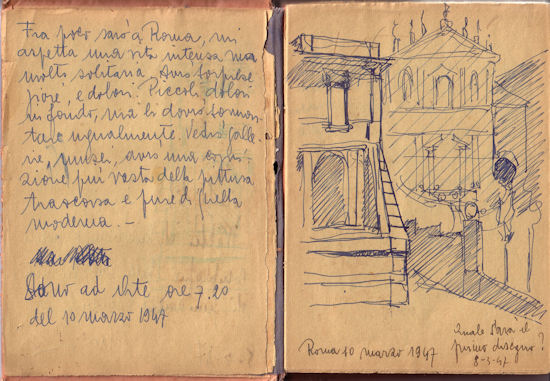 Fra poco sarò a Roma, mi
aspetta una vita intensa ma
molto solitaria Avrò sorprese
gioie, e dolori. Piccoli dolori
in fondo, ma li dovrò sormon-
tare ugualmente. Vedrò galle-
rie, musei, avrò una cogni-
zione più vasta della pittura
trascorsa e pure di quella
moderna. -
Sono ad ore 7,20
del 10 marzo 1947
Roma 10 marzo 1947
Quale sarà il
primo disegno?
8-3-47